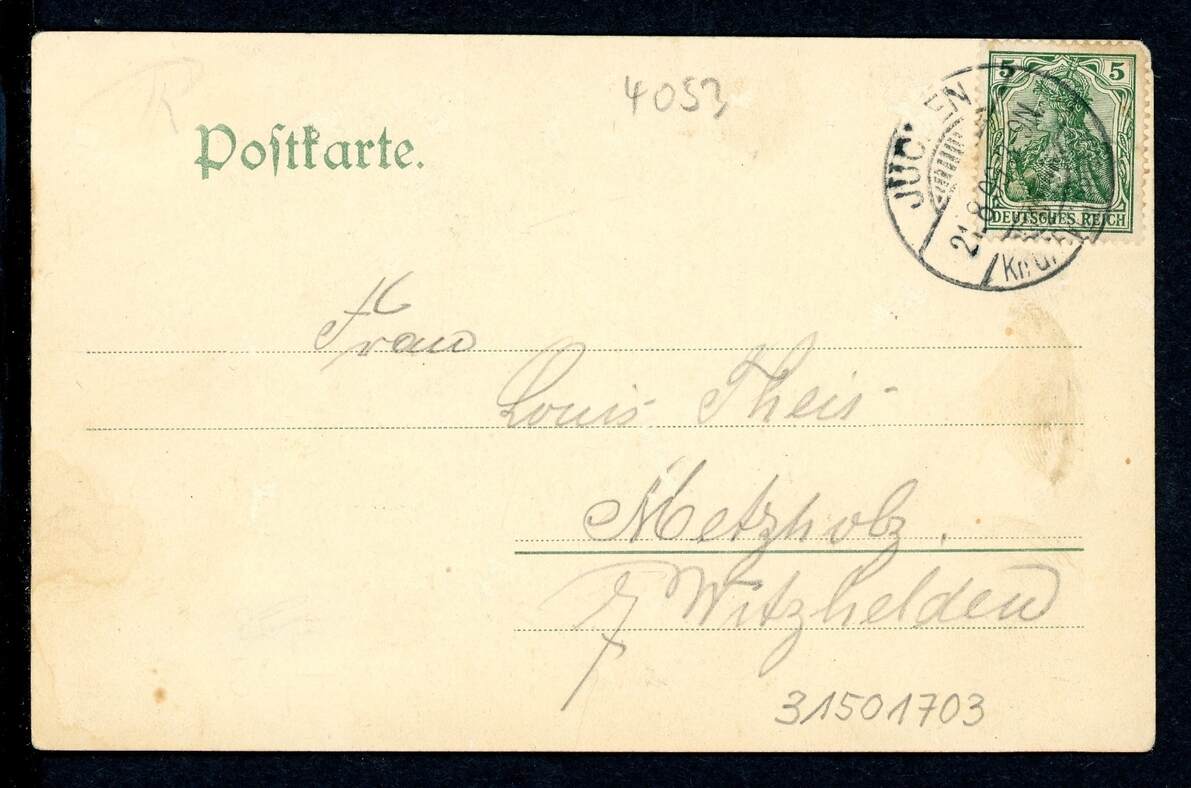 4053
Postkarte.
5 5
DEUTSCHES REICH
Frau
Louis Theis
Metzholz.
Witzhelden
31501703